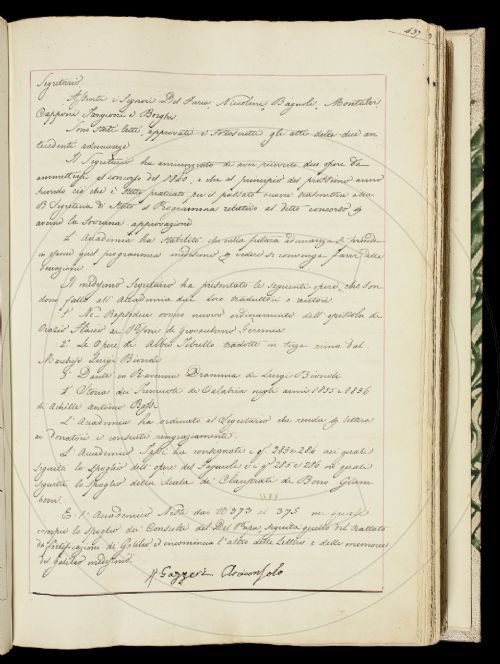 Segretario
Assenti i Signori Del Furia Niccolini, Bagnoli, Montalvi
Capponi Targioni e Borghi.
Sono stati letti, approvati e sottoscritti gli atti delle due an
tecedenti adunanze
Il Segretario ha annunziato di aver ricevuto due opere da
ammettersi al concorso del 1840, e che al principio del prossimo anno
secondo ciò che è stato praticato per il passato trasmettere alla
R Segreteria di Stato il Programma relativo al detto concorso p
averne la Sovrana approvazione
L'Accademia ha stabilito che nella futura adunanza si prenda
in esame quel programma medesimo p vedere se convenga farvi alla
variazione
Il medesimo Segretario ha presentato le seguenti opere, che son
dono fatto all'Accademia dai loro traduttori e autori
1° Neo ordinamento dell'epistola di
Orazio Flacco ai Pisoni di Giovacchino Geremia
2° Le Opere di Albio Tibullo tradotte in terza rima dal
Marchese Luigi Biondi
3° Dante in Ravenna Dramma di Luigi Biondi
4° Storia dei Tremuoti di Calabria negli anni 1835 e 1836
di Achille Antonio Rossi
L'Accademia ha ordinato al Segretario che renda p lettera
ai donatori i consueti ringraziamenti.
L'Accademico ha consegnato i qi 283 e 284 nei quali
seguita lo spoglio dell'opere del Fagiuoli e i qi 285 e 286 nei quali
seguita lo spoglio della Scala del Claustrali di Bono Giam
boni.
E l'Accademico Nesti dal 373 al 375 in quali
compie lo spoglio da Consulti del Del Papa, seguita quello del trattato
di fortificazioni di Galileo ed incomincia l'altro delle Lettere e delle memorie
del Galileo medesimo.
Gazzeri Arciconsolo